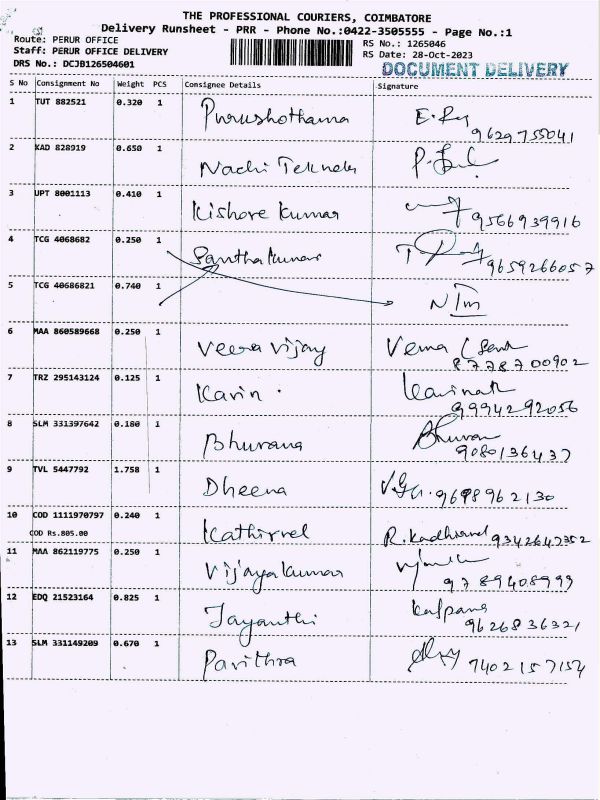 THE PROFESSIONAL COURIERS, COIMBATORE
Delivery Runsheet - PRR - Phone No.:0422-3505555 - Page No.:1
Route: PERUR OFFICE
RS No.: 1265046
Staff: PERUR OFFICE DELIVERY
RS Date: 28-Oct-2023
DRS No.: DCJB126504601
DOCUMENT DELIVERY
S No Consignment No Weight PCS Consignee Details Signature
1 TUT 882521 0.320 1 Purushothama E.Ry
9629755041
2 KAD 828919 0.650 1 Nachi Teknolo
3 UPT 8001113 0.410 1 Kishore Kumar
9566939916
4 TCG 4068682 0.250 1 Santhakumar
9659266057
5 TCG 40686821 0.740 1 NIm
6 MAA 860589668 0.250 1 Veera Vijay Vema
8778700902
7 TRZ 295143124 0.125 1 Kavin Kavinath
9994292056
8 SLM 331397642 0.180 1 Bhuvana Bhuvan
9080136437
9 TVL 5447792 1.758 1 Dheena 9698962130
10 COD 1111970797 0.240 1 Kathirvel R.Kadhirvel 9342647352
COD Rs.805.00
11 MAA 862119775 0.250 1 Vijayakumar
9789408999
12 EDQ 21523164 0.825 1 Jayanthi Kalpana
9626836321
13 SLM 331149209 0.670 1 Pavithra 7402157154